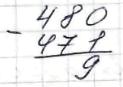 - 480
471
9